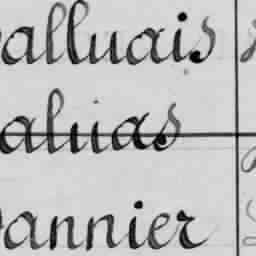 alluais
aluas
annier